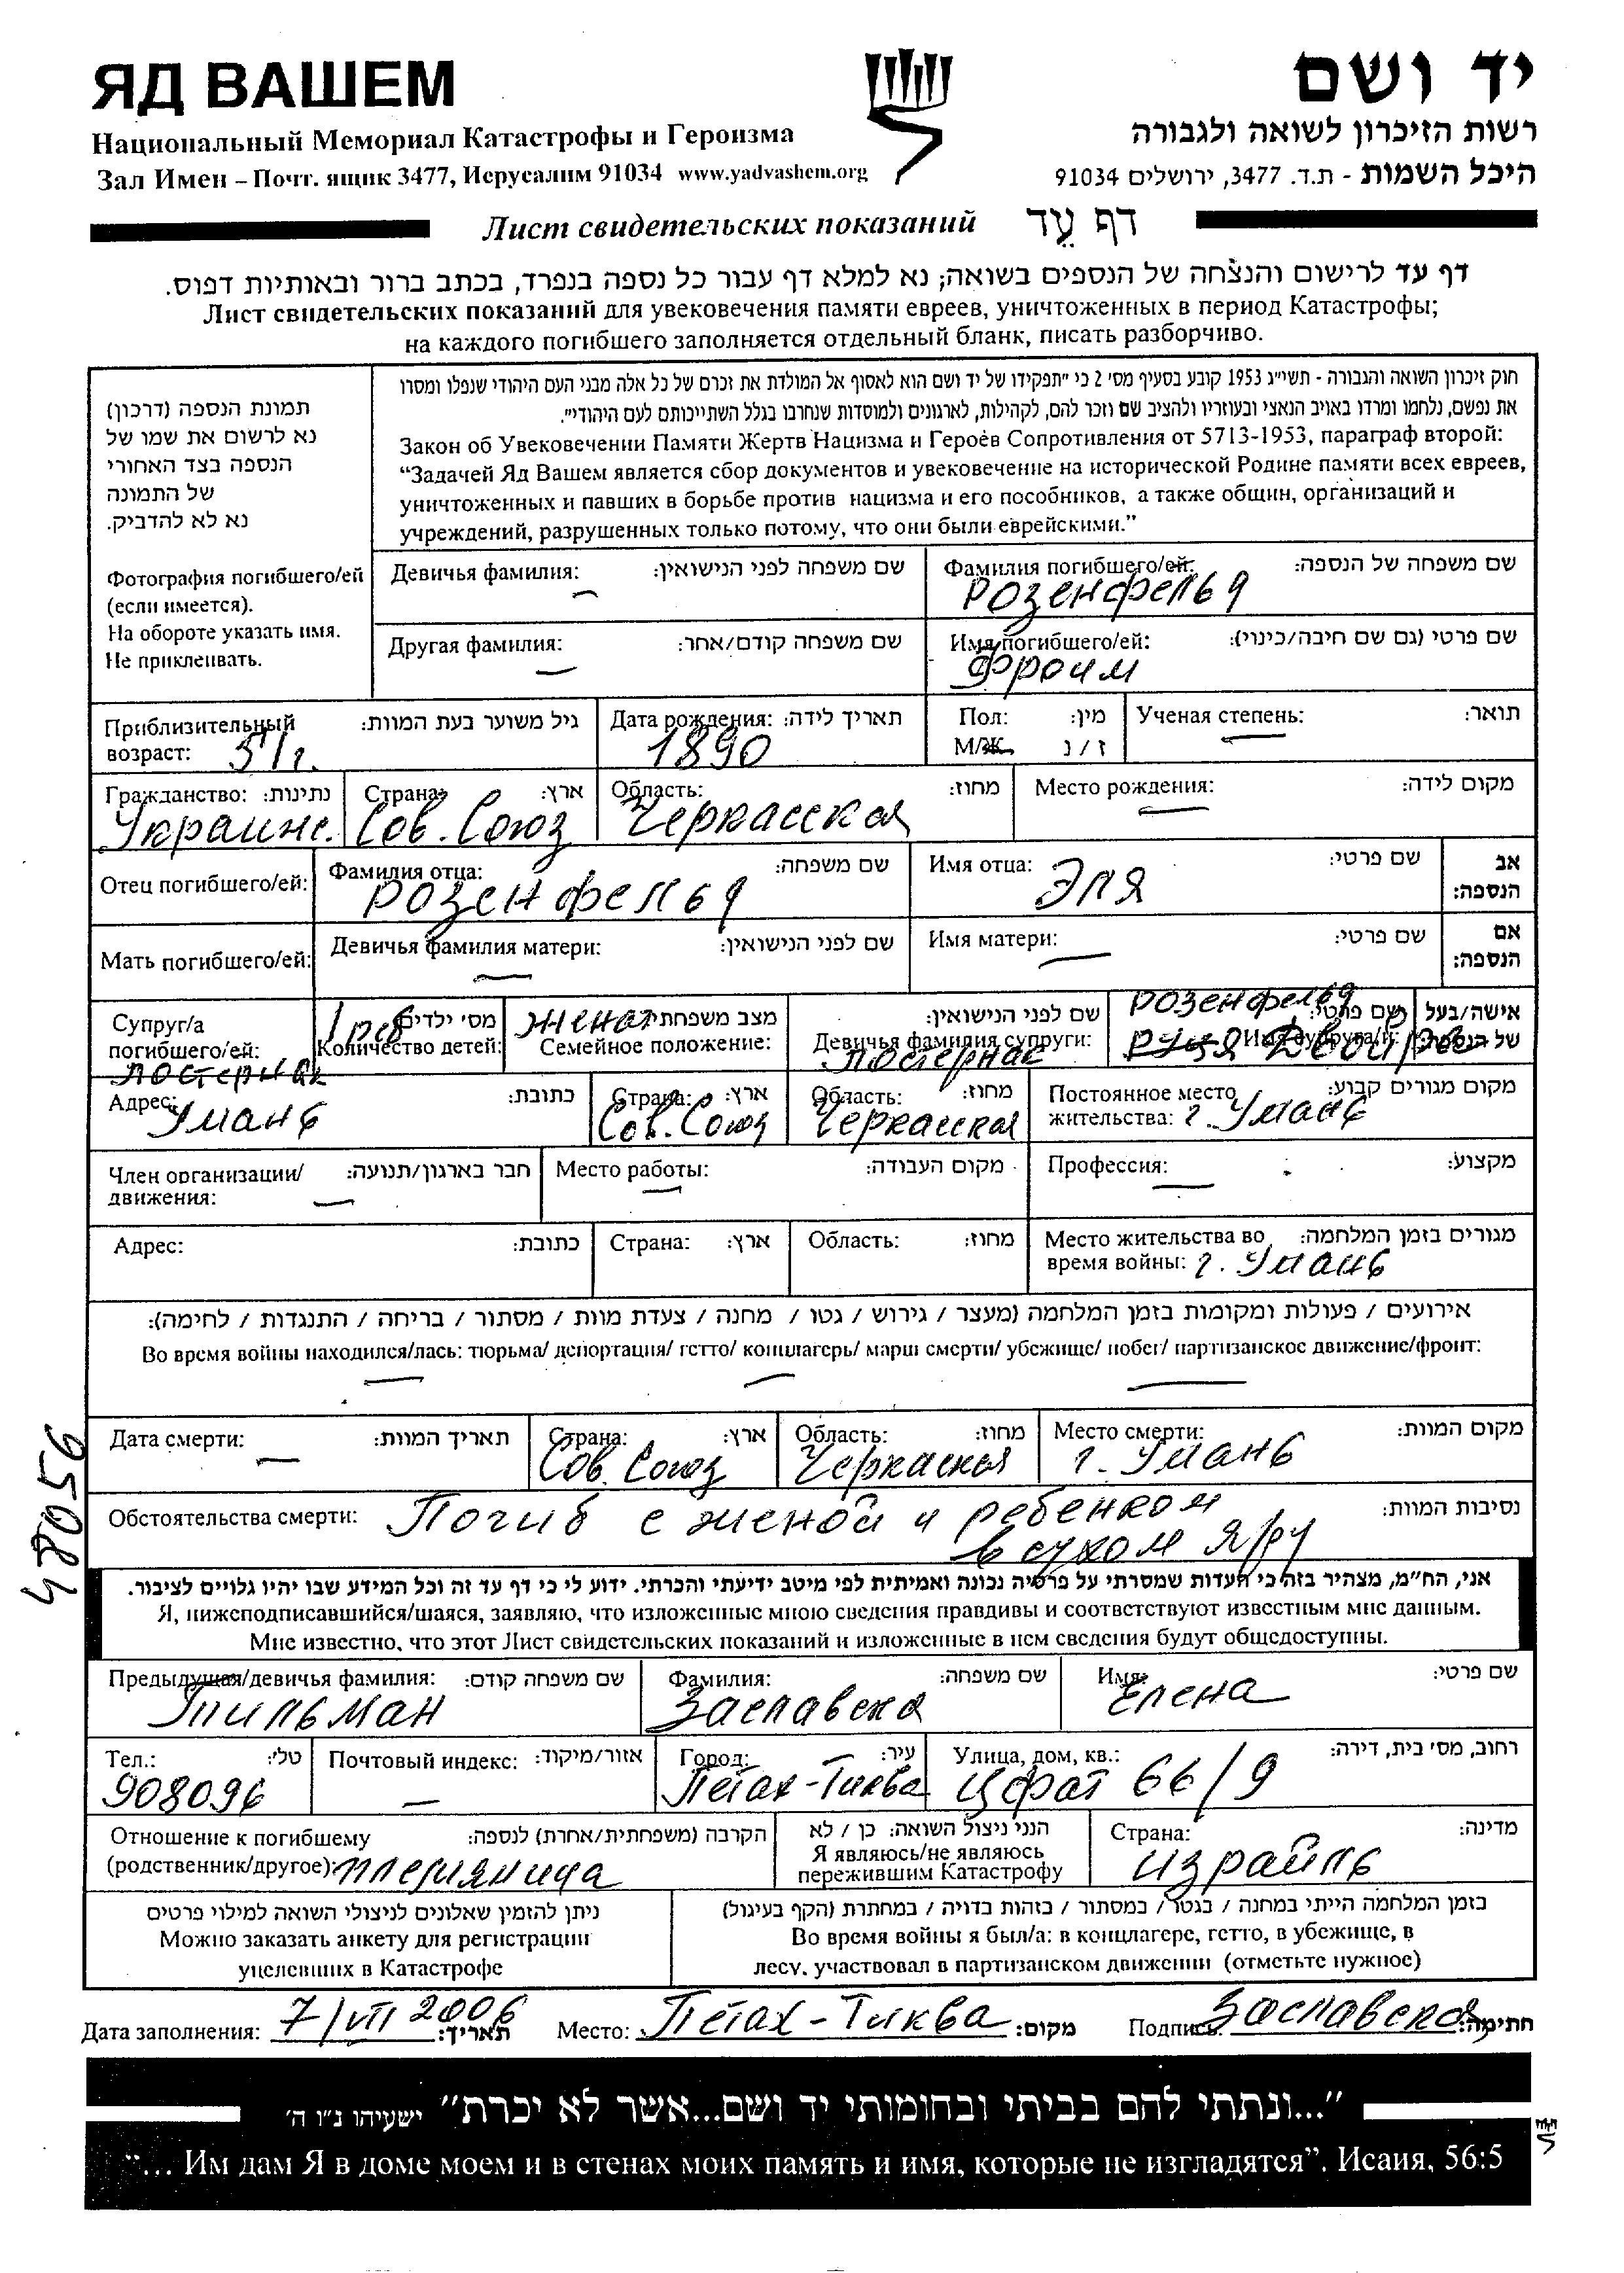 ЯД ВАШЕМ
יד ושם
Национальный Мемориал Катастрофы и Героизма
רשות הזיכרון לשואה ולגבורה
Зал Имен – Почт. ящик 3477, Иерусалим 91034 www.yadvashem.org
היכל השמות - ת.ד. 3477, ירושלים 91034
Лист свидетельских показаний דף עֵד
דף עד לרישום והנצחה של הנספים בשואה; נא למלא דף עבור כל נספה בנפרד, בכתב ברור ובאותיות דפוס.
Лист свидетельских показаний для увековечения памяти евреев, уничтоженных в период Катастрофы;
на каждого погибшего заполняется отдельный бланк, писать разборчиво.
תמונת הנספה (דרכון)
נא לרשום את שמו של
הנספה בצד האחורי
של התמונה
נא לא להדביק.
Фотография погибшего/ей
(если имеется).
На обороте указать имя.
Не приклеивать.
חוק זיכרון השואה והגבורה - תשי"ג 1953 קובע בסעיף מס' 2 כי "תפקידו של יד ושם הוא לאסוף אל המולדת את זכרם של כל אלה מבני העם היהודי שנפלו ומסרו
את נפשם, נלחמו ומרדו באויב הנאצי ובעוזריו ולהציב שם וזכר להם, לקהילות, לארגונים ולמוסדות שנחרבו בגלל השתייכותם לעם היהודי".
Закон об Увековечении Памяти Жертв Нацизма и Героев Сопротивления от 5713-1953, параграф второй:
“Задачей Яд Вашем является сбор документов и увековечение на исторической Родине памяти всех евреев,
уничтоженных и павших в борьбе против нацизма и его пособников, а также общин, организаций и
учреждений, разрушенных только потому, что они были еврейскими.”
Девичья фамилия: שם משפחה לפני הנישואין: Фамилия погибшего/ей: שם משפחה של הנספה:
Розенфельд
Другая фамилия: שם משפחה קודם/אחר: Имя погибшего/ей: שם פרטי (גם שם חיבה/כינוי):
Фроим
Приблизительный גיל משוער בעת המוות: Дата рождения: תאריך לידה: Пол: מין: Ученая степень: תואר:
возраст: 51г. 1890 М/Ж ז / נ
Гражданство: נתינות: Страна: ארץ: Область: מחוז: Место рождения: מקום לידה:
Украинс. Сов. Союз Черкасская
Отец погибшего/ей: Фамилия отца: שם משפחה: Имя отца: שם פרטי: אב הנספה:
Розенфельд Эля
Мать погибшего/ей: Девичья фамилия матери: שם לפני הנישואין: Имя матери: שם פרטי: אם הנספה:
Супруг/а погибшего/ей: מס' ילדים Количество детей: 1 реб מצב משפחתי Семейное положение: женат
שם לפני הנישואין: Девичья фамилия супруги: Постернак
Розенфельд שם פרטי: Имя супруга/и: Двойра אישה/בעל של הנספה:
Постернак
Адрес: כתובת: Страна: ארץ: Область: מחוז: Постоянное место מקום מגורים קבוע:
Умань Сов. Союз Черкасская жительства: г. Умань
Член организации/ חבר בארגון/תנועה: Место работы: מקום העבודה: Профессия: מקצוע:
движения:
Адрес: כתובת: Страна: ארץ: Область: מחוז: Место жительства во מגורים בזמן המלחמה:
время войны: г. Умань
אירועים / פעולות ומקומות בזמן המלחמה (מעצר / גירוש / גטו / מחנה / צעדת מוות / מסתור / בריחה / התנגדות / לחימה):
Во время войны находился/лась: тюрьма/ депортация/ гетто/ концлагерь/ марш смерти/ убежище/ побег/ партизанское движение/фронт:
Дата смерти: תאריך המוות: Страна: ארץ: Область: מחוז: Место смерти: מקום המוות:
Сов. Союз Черкасская г. Умань
48056
Обстоятельства смерти: Погиб с женой и ребенком נסיבות המוות:
в сухом яру
אני, הח"מ, מצהיר בזה כי העדות שמסרתי על פרטיה נכונה ואמיתית לפי מיטב ידיעתי והכרתי. ידוע לי כי דף עד זה וכל המידע שבו יהיו גלויים לציבור.
Я, нижеподписавшийся/шаяся, заявляю, что изложенные мною сведения правдивы и соответствуют известным мне данным.
Мне известно, что этот Лист свидетельских показаний и изложенные в нем сведения будут общедоступны.
Предыдущая/девичья фамилия: שם משפחה קודם: Фамилия: שם משפחה: Имя: שם פרטי:
Тильман Заславска Елена
Тел.: טל': Почтовый индекс: אזור/מיקוד: Город: עיר: Улица, дом, кв.: רחוב, מס' בית, דירה:
908096 Петах-Тиква Цфат 66/9
Отношение к погибшему הקרבה (משפחתית/אחרת) לנספה: הנני ניצול השואה: כן / לא Страна: מדינה:
(родственник/другое): племяница Я являюсь/не являюсь Израиль
пережившим Катастрофу
ניתן להזמין שאלונים לניצולי השואה למילוי פרטים
Можно заказать анкету для регистрации
уцелевших в Катастрофе
בזמן המלחמה הייתי במחנה / בגטו / במסתור / בזהות בדויה / במחתרת (הקף בעיגול)
Во время войны я был/а: в концлагере, гетто, в убежище, в
лесу, участвовал в партизанском движении (отметьте нужное)
Дата заполнения: 7/VII 2006 תאריך: Место: Петах-Тиква מקום: Подпись: Заславская חתימה:
"...ונתתי להם בביתי ובחומותי יד ושם...אשר לא יכרת" ישעיהו נ"ו ה'
“... Им дам Я в доме моем и в стенах моих память и имя, которые не изгладятся”. Исаия, 56:5